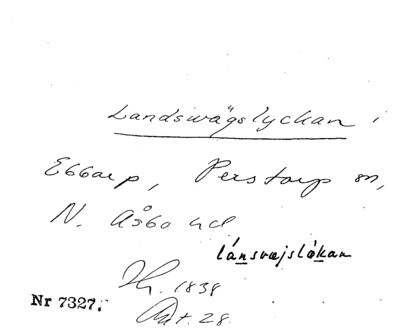 Landswägslyckan i
Ebbarp, Perstorp sn,
N. Åsbo hd
lánsvæjslákan
Jh. 1838
Akt. 28.
Nr 7327.